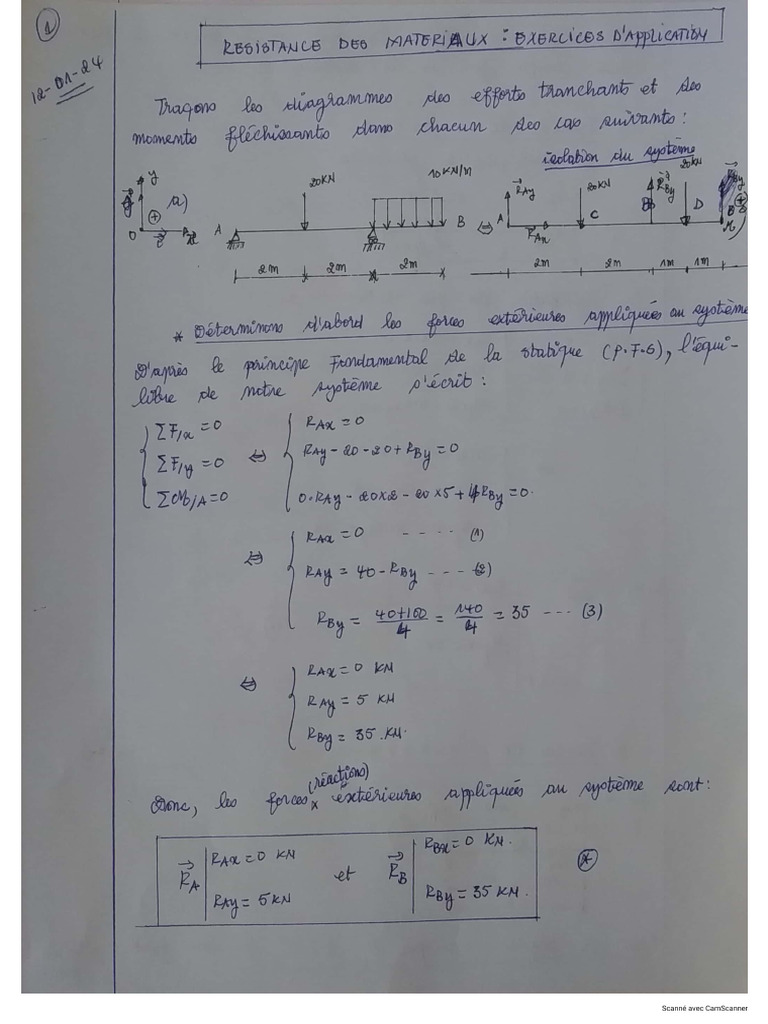 1
12-01-24
RESISTANCE DES MATERIAUX : EXERCICES D'APPLICATION
Traçons les diagrammes des efforts tranchants et des
moments fléchissants dans chacun des cas suivants :
isolation du système
y
O
+
a)
A
20KN
10KN/m
B
2m
2m
2m
⇔
A
R_Ay
R_Ax
20KN
C
R_By
20KN
D
R_By
B
2m
2m
1m
1m
* Déterminons d'abord les forces extérieures appliquées au système
D'après le principe Fondamental de la statique (P.F.S), l'équi-
libre de notre système s'écrit :
ΣF/x = 0 ⇔ R_Ax = 0
ΣF/y = 0 R_Ay - 20 - 20 + R_By = 0
ΣM/A = 0 0.R_Ay - 20x2 - 20x5 + 4R_By = 0.
⇔ R_Ax = 0 ---- (1)
R_Ay = 40 - R_By ---- (2)
R_By = 40+100/4 = 140/4 = 35 --- (3)
⇔ R_Ax = 0 KN
R_Ay = 5 KN
R_By = 35 KN.
(réactions)
Donc, les forces extérieures appliquées au système sont :
R_A R_Ax = 0 KN et R_B R_Bx = 0 KN. *
R_Ay = 5KN R_By = 35 KN.
Scanné avec CamScanner